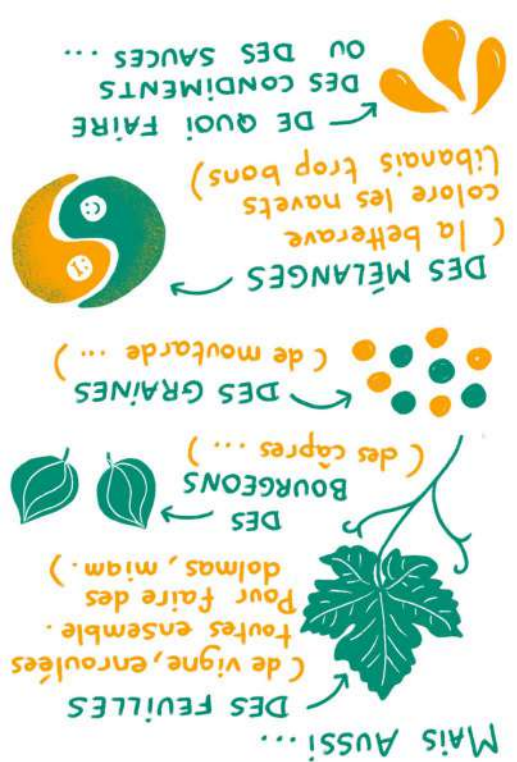 MAIS AUSSI ...
DES FEUILLES
(de vigne, enroulées
toutes ensemble.
Pour faire des
dolmas, miam.)
DES
BOURGEONS
(des câpres ...)
DES GRAINES
(de moutarde ...)
DES MÉLANGES
(la betterave
colore les navets
libanais trop bons)
DE QUOI FAIRE
DES CONDIMENTS
OU DES SAUCES ...